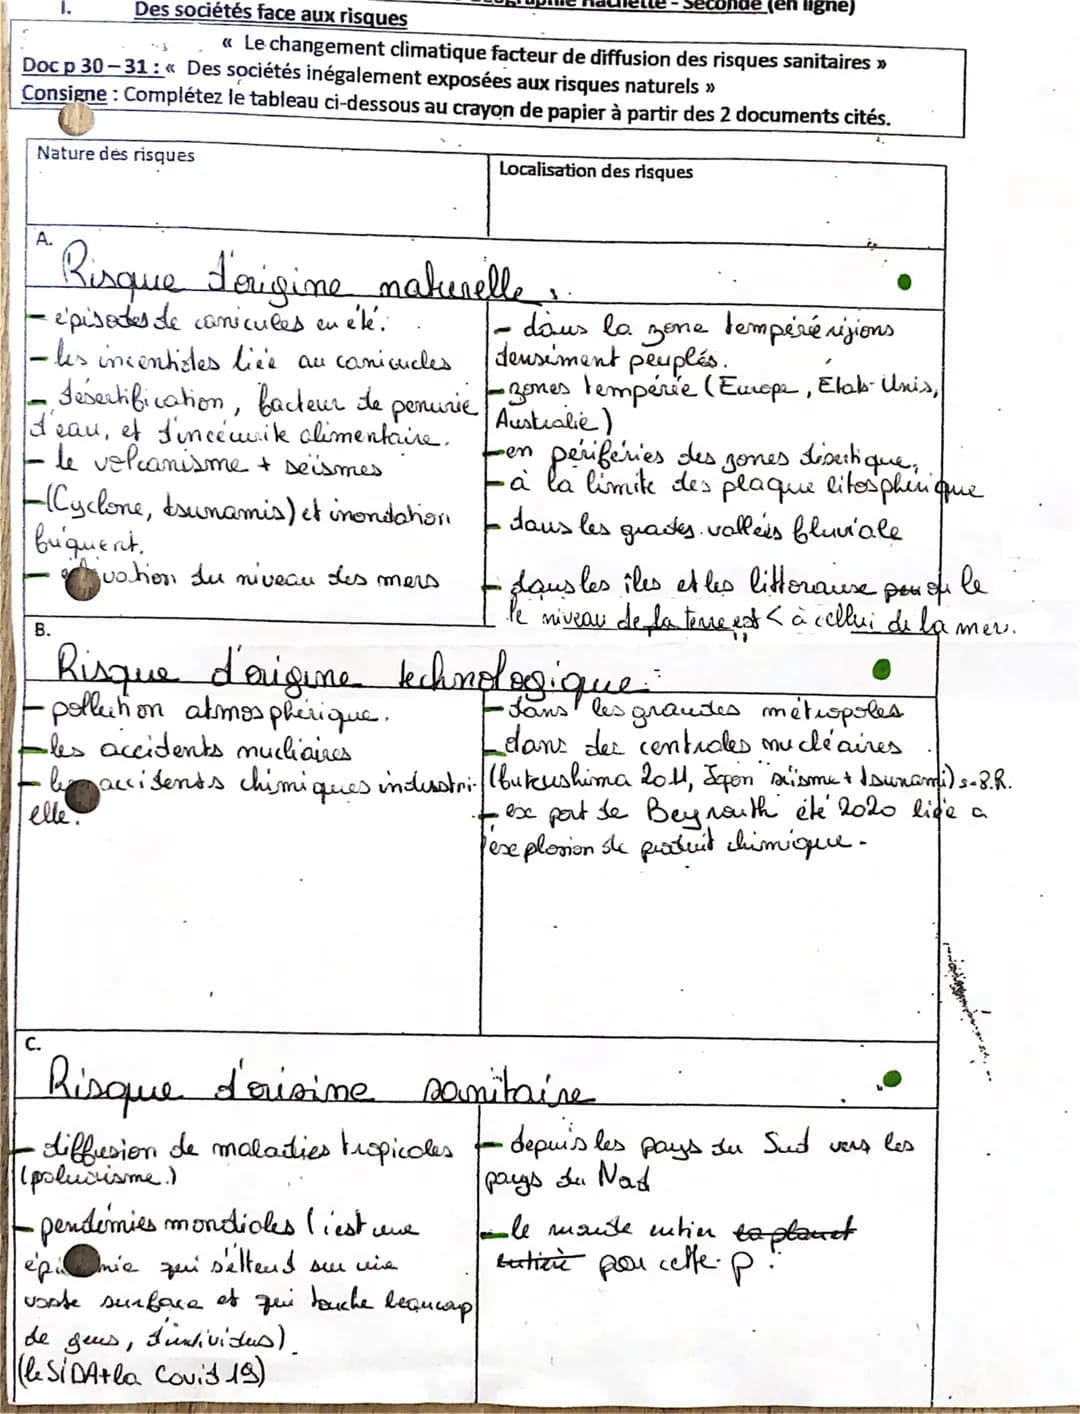 I. Des sociétés face aux risques
Hachette - Seconde (en ligne)
« Le changement climatique facteur de diffusion des risques sanitaires »
Doc p 30 – 31 : « Des sociétés inégalement exposées aux risques naturels »
Consigne : Complétez le tableau ci-dessous au crayon de papier à partir des 2 documents cités.
Nature des risques
Localisation des risques
A.
Risque d'origine naturelle :
- épisodes de canicules en été.
- les incenthides liée au canicucles
- désertification, facteur de penurie
d'eau, et d'insécurité alimentaire.
- le volcanisme + seïsmes
- (Cyclone, tsunamis) et inondation
fréquent.
- vation du niveau des mers
- dans la zone tempéré régions
densément peuplés.
- zones tempérée (Europe, Etats-Unis,
Australie)
- en périféries des zones désertique,
- à la limite des plaque litosphérique
- dans les grades vallées fluviale
- dans les îles et les littoraux le
le niveau de la terre est < à cellui de la mer.
B.
Risque d'origine technologique :
- pollution atmosphérique.
- les accidents nucliaires
- les accidents chimiques industri-
elle.
- dans les grandes métropoles
- dans des centrales nucléaires
(fukushima 2011, Japon séisme + tsunami) s-8.R.
- ex port de Beyrouth été 2020 liée a
l'explosion de produit chimique.
C.
Risque d'origine sanitaire
- diffusion de maladies tropicales
(
- pendémies mondiales (c'est une
épi mie qui s'éttend sur une
vaste surface et qui touche beaucoup
de gens, d'individus).
(le SIDA + la Covid 19)
- depuis les pays du Sud vers les
pays du Nord
- le monde entier la planet
entière pour cette p.